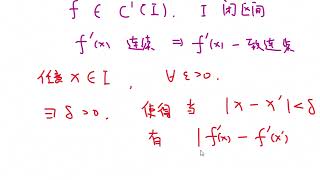 f ∈ C'(I). I 闭区间
f'(x) 连续 ⇒ f'(x) 一致连续
任意 x ∈ I, ∀ ε>0.
∃ δ>0. 使得当 |x - x'|<δ
有 |f'(x) - f'(x')